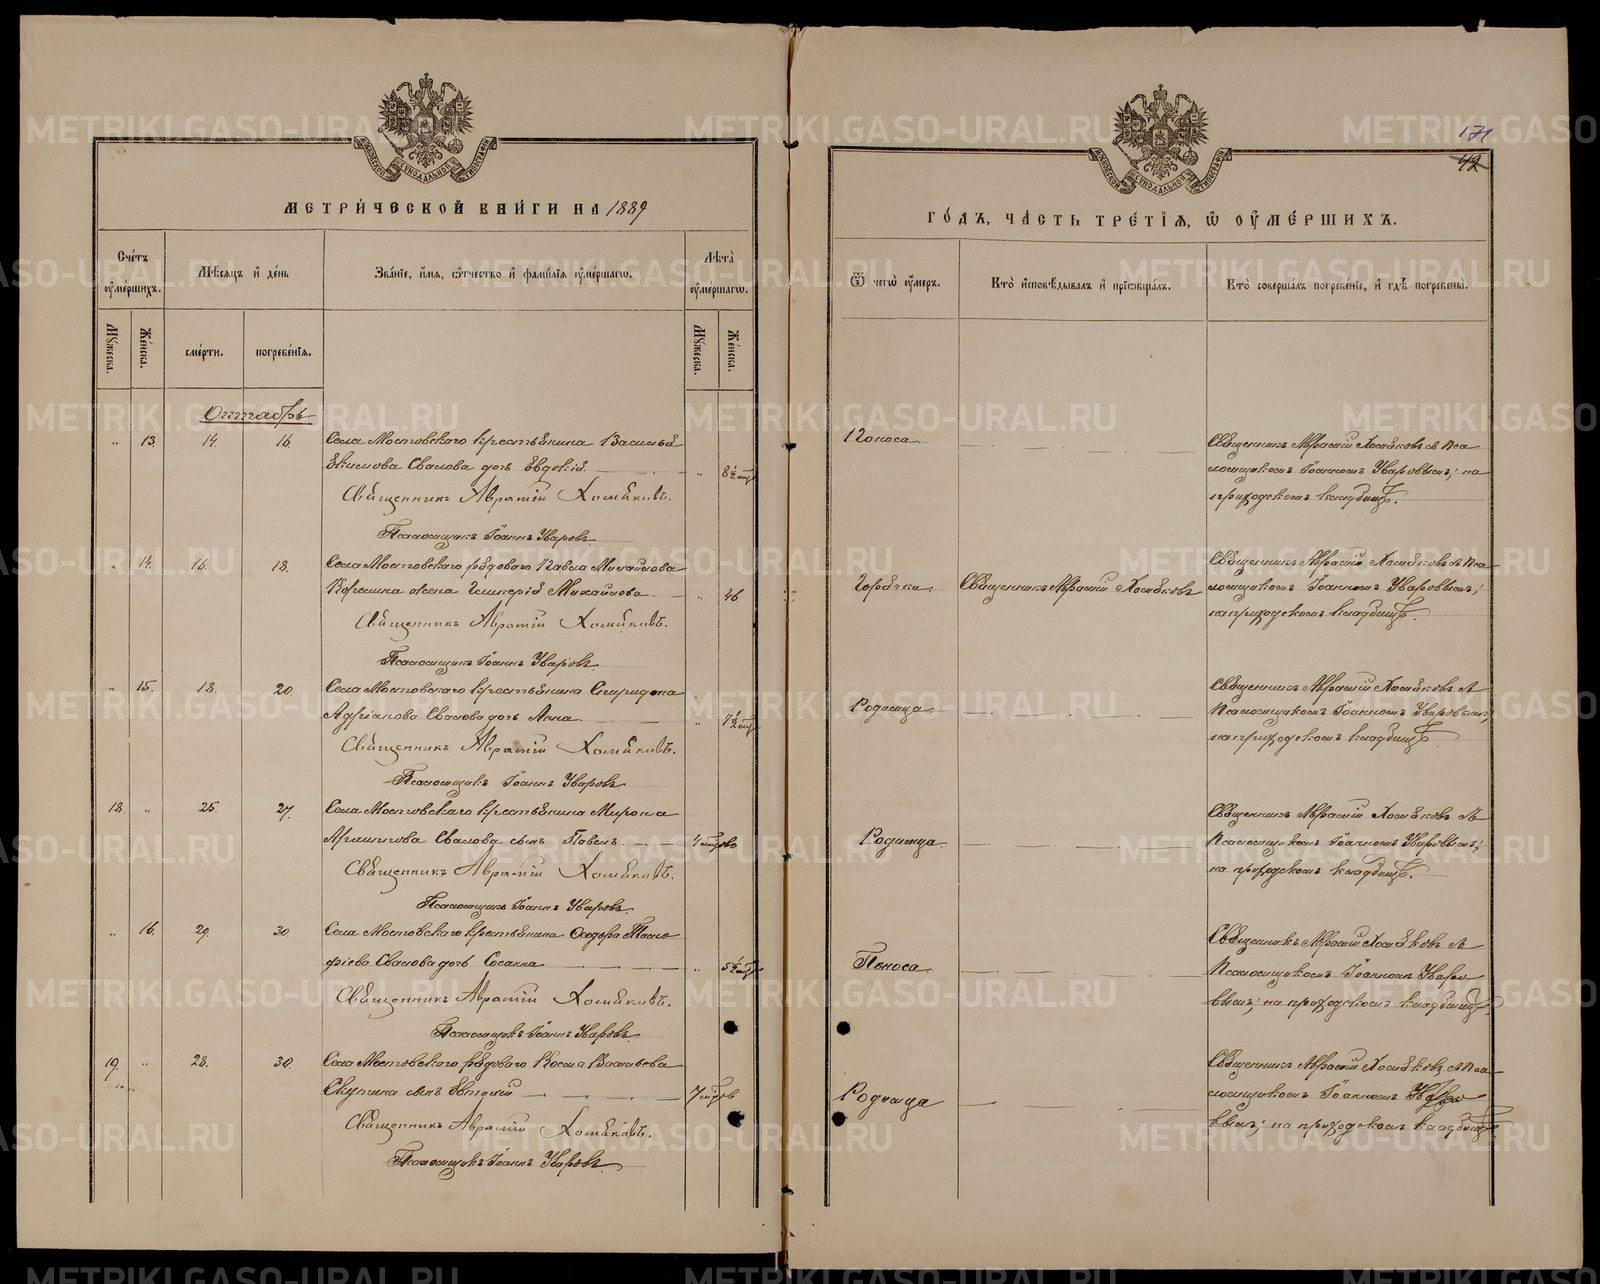 МЕТРИ́ЧЕСКОЙ КНИ́ГИ НА 1889
Сче́тъ ᲂу҆ме́ршихъ.
Мѣ́сяцъ и҆ де́нь
Зва́нїе, и҆́мя, ѻ҆́тчество и҆ фами́лїя ᲂу҆ме́ршагѡ.
Лѣ́та ᲂу҆ме́ршагѡ.
Мꙋ́жеска.
Же́нска.
сме́рти.
погребе́нїя.
Мꙋ́жеска.
Же́нска.
Октябрь
„ 13. 14. 16. Села Мостовскаго крестьянина Василья
Екимова Свалова дочь Евдокія. „ 8½ мѣс
Священникъ Авраамій Хомяковъ.
Псаломщикъ Іоаннъ Уваровъ.
„ 14. 16. 18. Села Мостовскаго рядоваго Павла Михайлова
жена Гликерія Михайлова. „ 46.
Священникъ Авраамій Хомяковъ.
Псаломщикъ Іоаннъ Уваровъ.
„ 15. 18. 20. Села Мостовскаго крестьянина Спиридона
Адріанова Свалова дочь Анна. „ 7½ мѣс
Священникъ Авраамій Хомяковъ.
Псаломщикъ Іоаннъ Уваровъ.
18. „ 25. 27. Села Мостовскаго крестьянина Мирона
Свалова сынъ Павелъ.
Священникъ Авраамій Хомяковъ.
Псаломщикъ Іоаннъ Уваровъ.
„ 16. 29. 30. Села Мостовскаго крестьянина Ѳеодора
Свалова дочь „ 5½ мѣс
Священникъ Авраамій Хомяковъ.
Псаломщикъ Іоаннъ Уваровъ.
19. „ 28. 30. Села Мостовскаго рядоваго Васильева
сынъ
Священникъ Авраамій Хомяковъ.
Псаломщикъ Іоаннъ Уваровъ.
171
42
ГО́ДЪ, ЧА́СТЬ ТРЕ́ТЇЯ, Ѡ҆ ОУ҆МЕ́РШИХЪ.
Ѿ чегѡ̀ ᲂу҆́меръ.
Кто̀ и҆сповѣ́дывалъ и҆ прїѡбща́лъ.
Кто̀ соверша́лъ погребе́нїе, и҆ гдѣ̀ погребены̀.
Поноса
Священникъ Авраамій Хомяковъ съ Пса
ломщикомъ Іоанномъ Уваровымъ; на
приходскомъ кладбищѣ.
Горячка Священникъ Авраамій Хомяковъ
Священникъ Авраамій Хомяковъ съ Пса
ломщикомъ Іоанномъ Уваровымъ;
на приходскомъ кладбищѣ.
Родимца
Священникъ Авраамій Хомяковъ съ
Псаломщикомъ Іоанномъ Уваровымъ;
на приходскомъ кладбищѣ
Родимца
Священникъ Авраамій Хомяковъ съ
Псаломщикомъ Іоанномъ Уваровымъ;
на приходскомъ кладбищѣ.
Поноса
Священникъ Авраамій Хомяковъ съ
Псаломщикомъ Іоанномъ Уваро
вымъ; на приходскомъ кладбищѣ.
Родимца
Священникъ Авраамій Хомяковъ съ Пса
ломщикомъ Іоанномъ Уваро
вымъ; на приходскомъ кладбищѣ.
METRIKI.GASO-URAL.RU